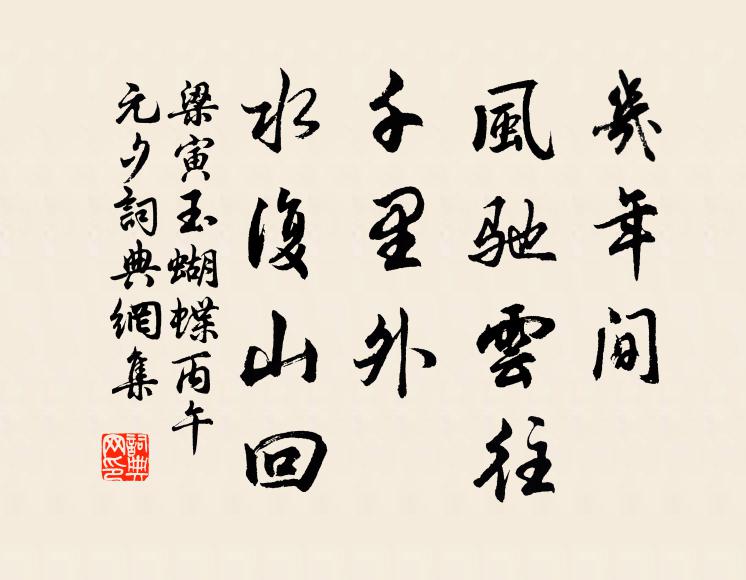 幾年間
風馳雲往
千里外
水復山回
梁寅玉蝴蝶丙午
元夕詞典網集
詞典網印